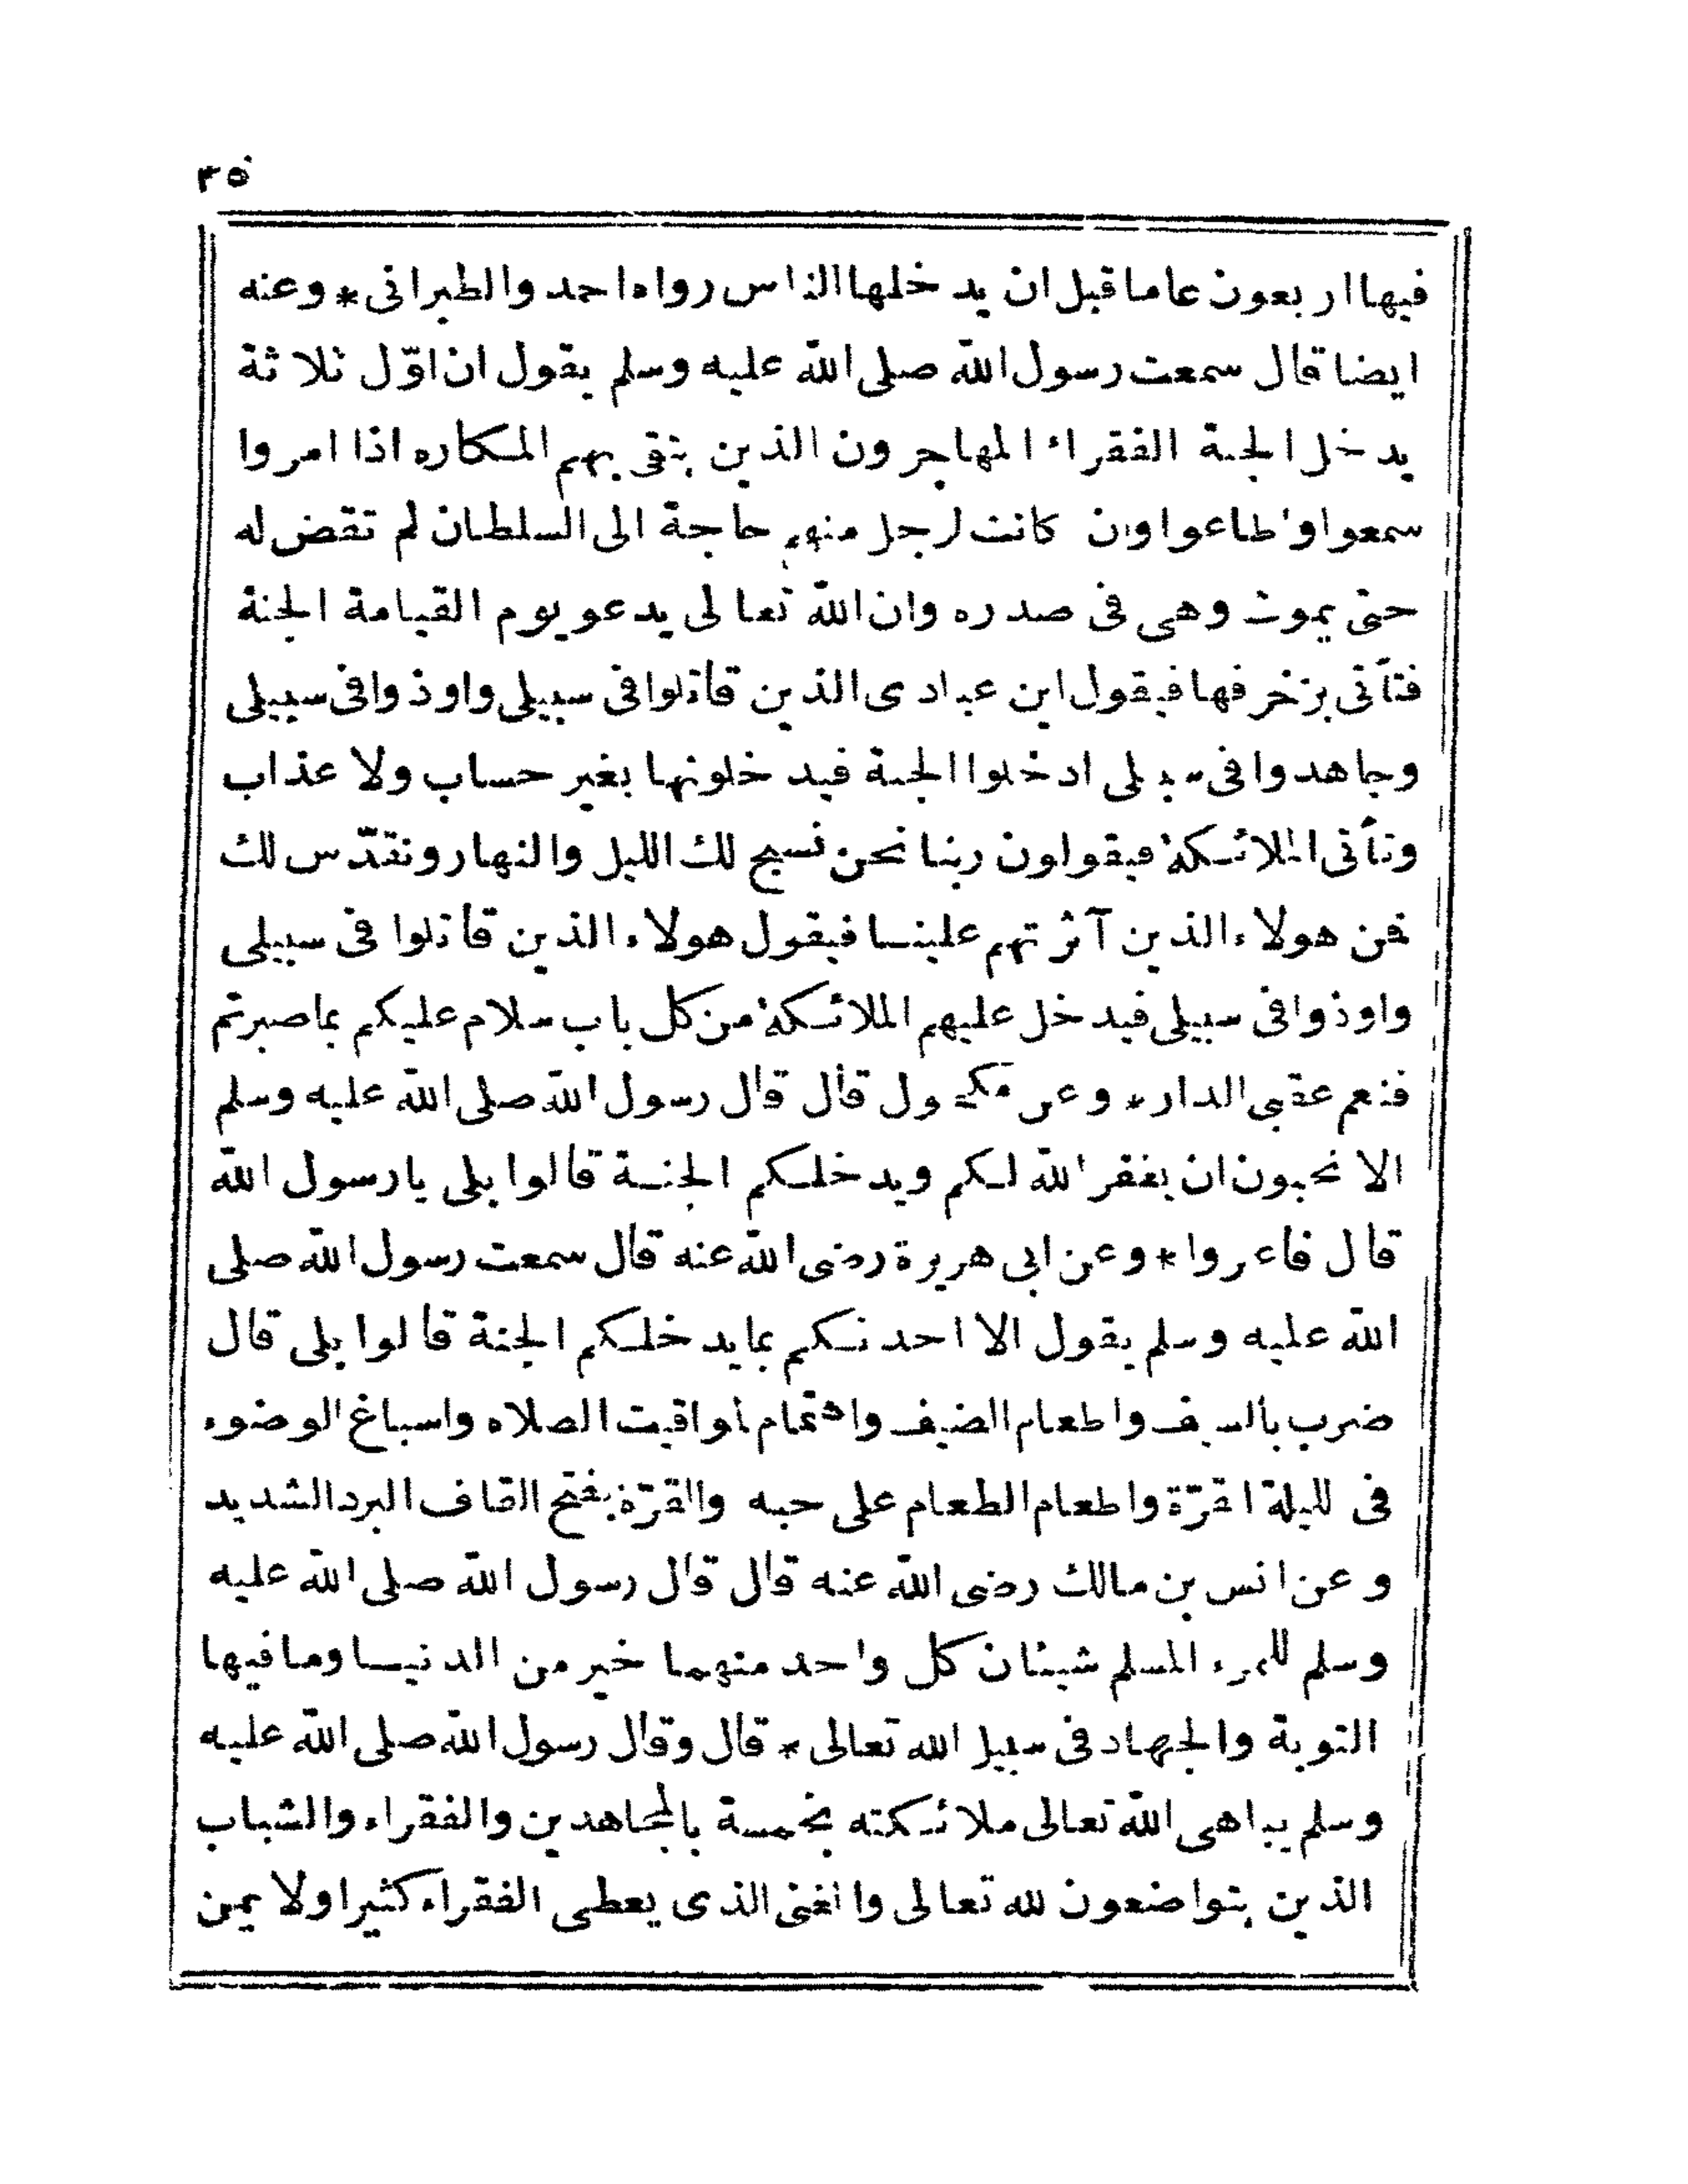 ٣٥
فيها اربعون عاما قبل ان يدخلها الناس رواه احمد والطبرانى * وعنه
ايضا قال سمعت رسول الله صلى الله عليه وسلم يقول ان اوّل ثلاثة
يدخل الجنة الفقراء المهاجرون الذين يتقى بهم المكاره اذا امروا
سمعوا واطاعوا وان كانت لرجل منهم حاجة الى السلطان لم تقض له
حتى يموت وهى فى صدره وان الله تعالى يدعو يوم القيامة الجنة
فتأتى بزخرفها فيقول اين عبادى الذين قاتلوا فى سبيلى واوذوا فى سبيلى
وجاهدوا فى سبيلى ادخلوا الجنة فيدخلونها بغير حساب ولا عذاب
وتأتى الملائكة فيقولون ربنا نحن نسبح لك الليل والنهار ونقدّس لك
فمن هولاء الذين آثرتهم علينا فيقول هولاء الذين قاتلوا فى سبيلى
واوذوا فى سبيلى فيدخل عليهم الملائكة من كل باب سلام عليكم بما صبرتم
فنعم عقبى الدار * وعن مكحول قال قال رسول الله صلى الله عليه وسلم
الا تحبون ان يغفر الله لكم ويدخلكم الجنة قالوا بلى يا رسول الله
قال فاغزوا * وعن ابى هريرة رضى الله عنه قال سمعت رسول الله صلى
الله عليه وسلم يقول الا احدثكم بما يدخلكم الجنة قالوا بلى قال
ضرب بالسيف واطعام الضيف واهتمام لمواقيت الصلاه واسباغ الوضوء
فى لليلة القرّة واطعام الطعام على حبه والقرّة بفتح القاف البرد الشديد
وعن انس بن مالك رضى الله عنه قال قال رسول الله صلى الله عليه
وسلم للمرء المسلم شيئان كل واحد منهما خير من الدنيا وما فيها
التوبة والجهاد فى سبيل الله تعالى * قال وقال رسول الله صلى الله عليه
وسلم يباهى الله تعالى ملائكته بخمسة بالمجاهدين والفقراء والشباب
الذين يتواضعون لله تعالى والغنى الذى يعطى الفقراء كثيرا ولا يمن